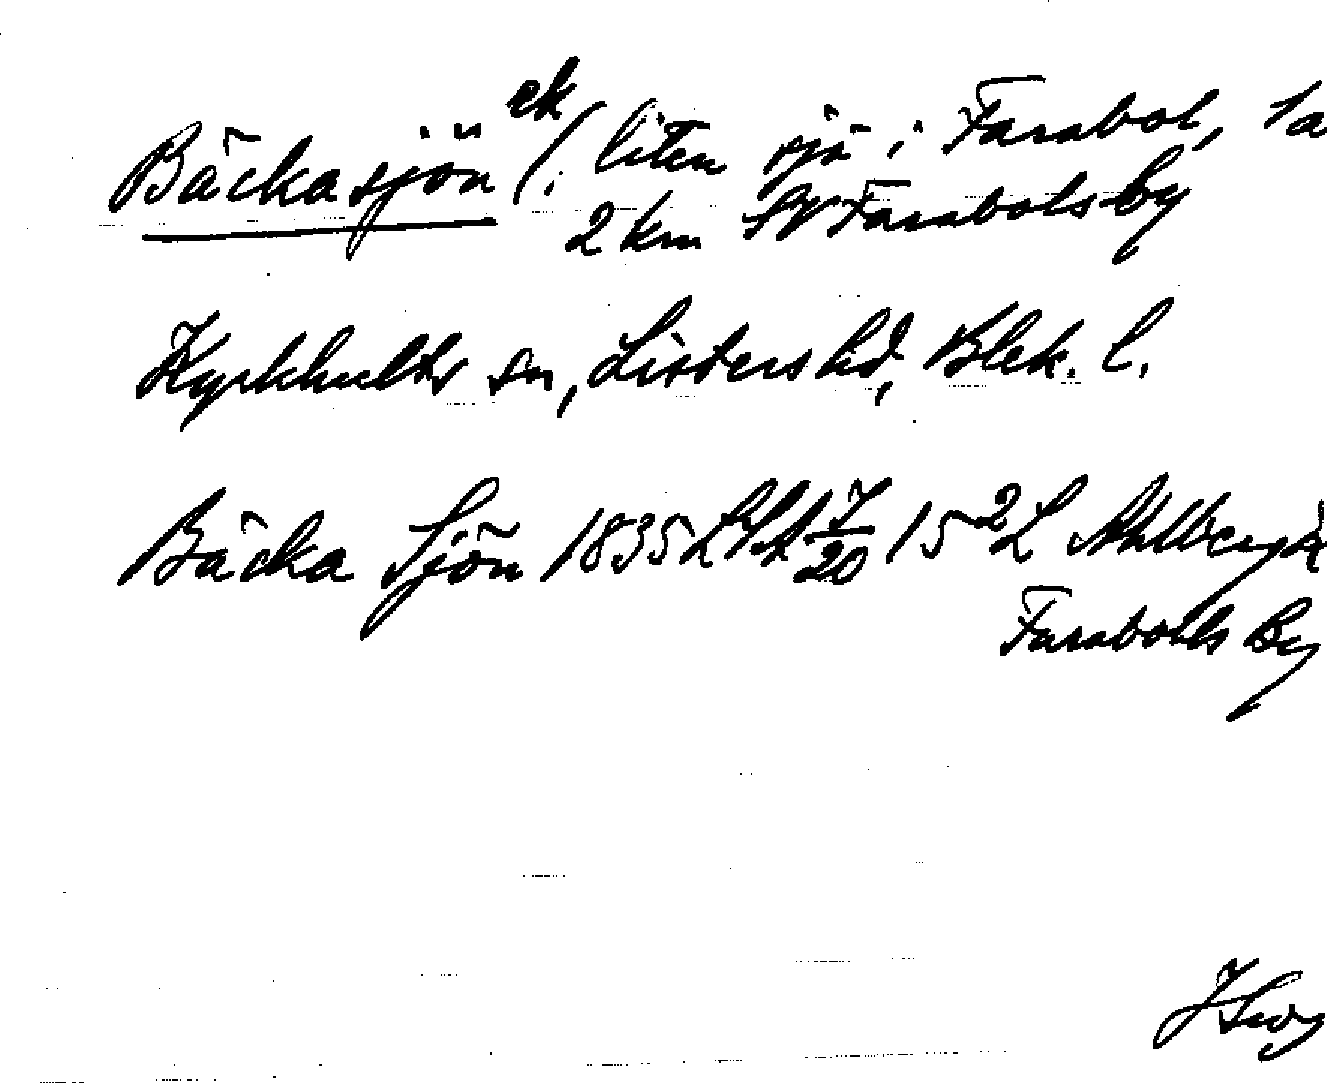 Bäckasjön ek (: liten sjö i Farabol, 1a
2 km SV Farabols by
Kyrkhults sn, Listers hd, Blek. l.
Bäcka Sjön 1835 LSA 7/20 15 2 L Ahlbergh
Farabohls By